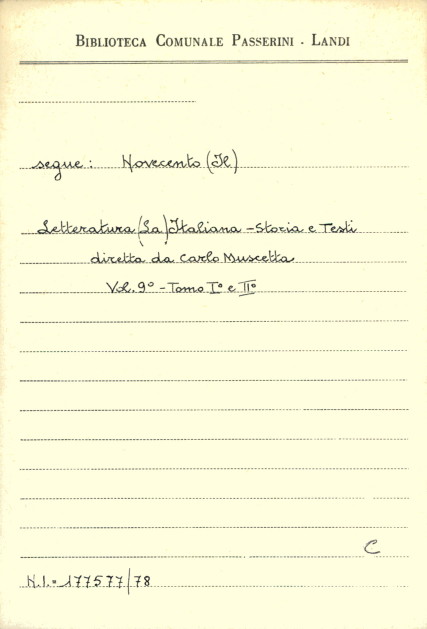 BIBLIOTECA COMUNALE PASSERINI - LANDI
segue: Novecento (Il)
Letteratura (La) Italiana - Storia e Testi
diretta da Carlo Muscetta
Vol. 9° - Tomo I° e II°
C
N.I.= 177577/78